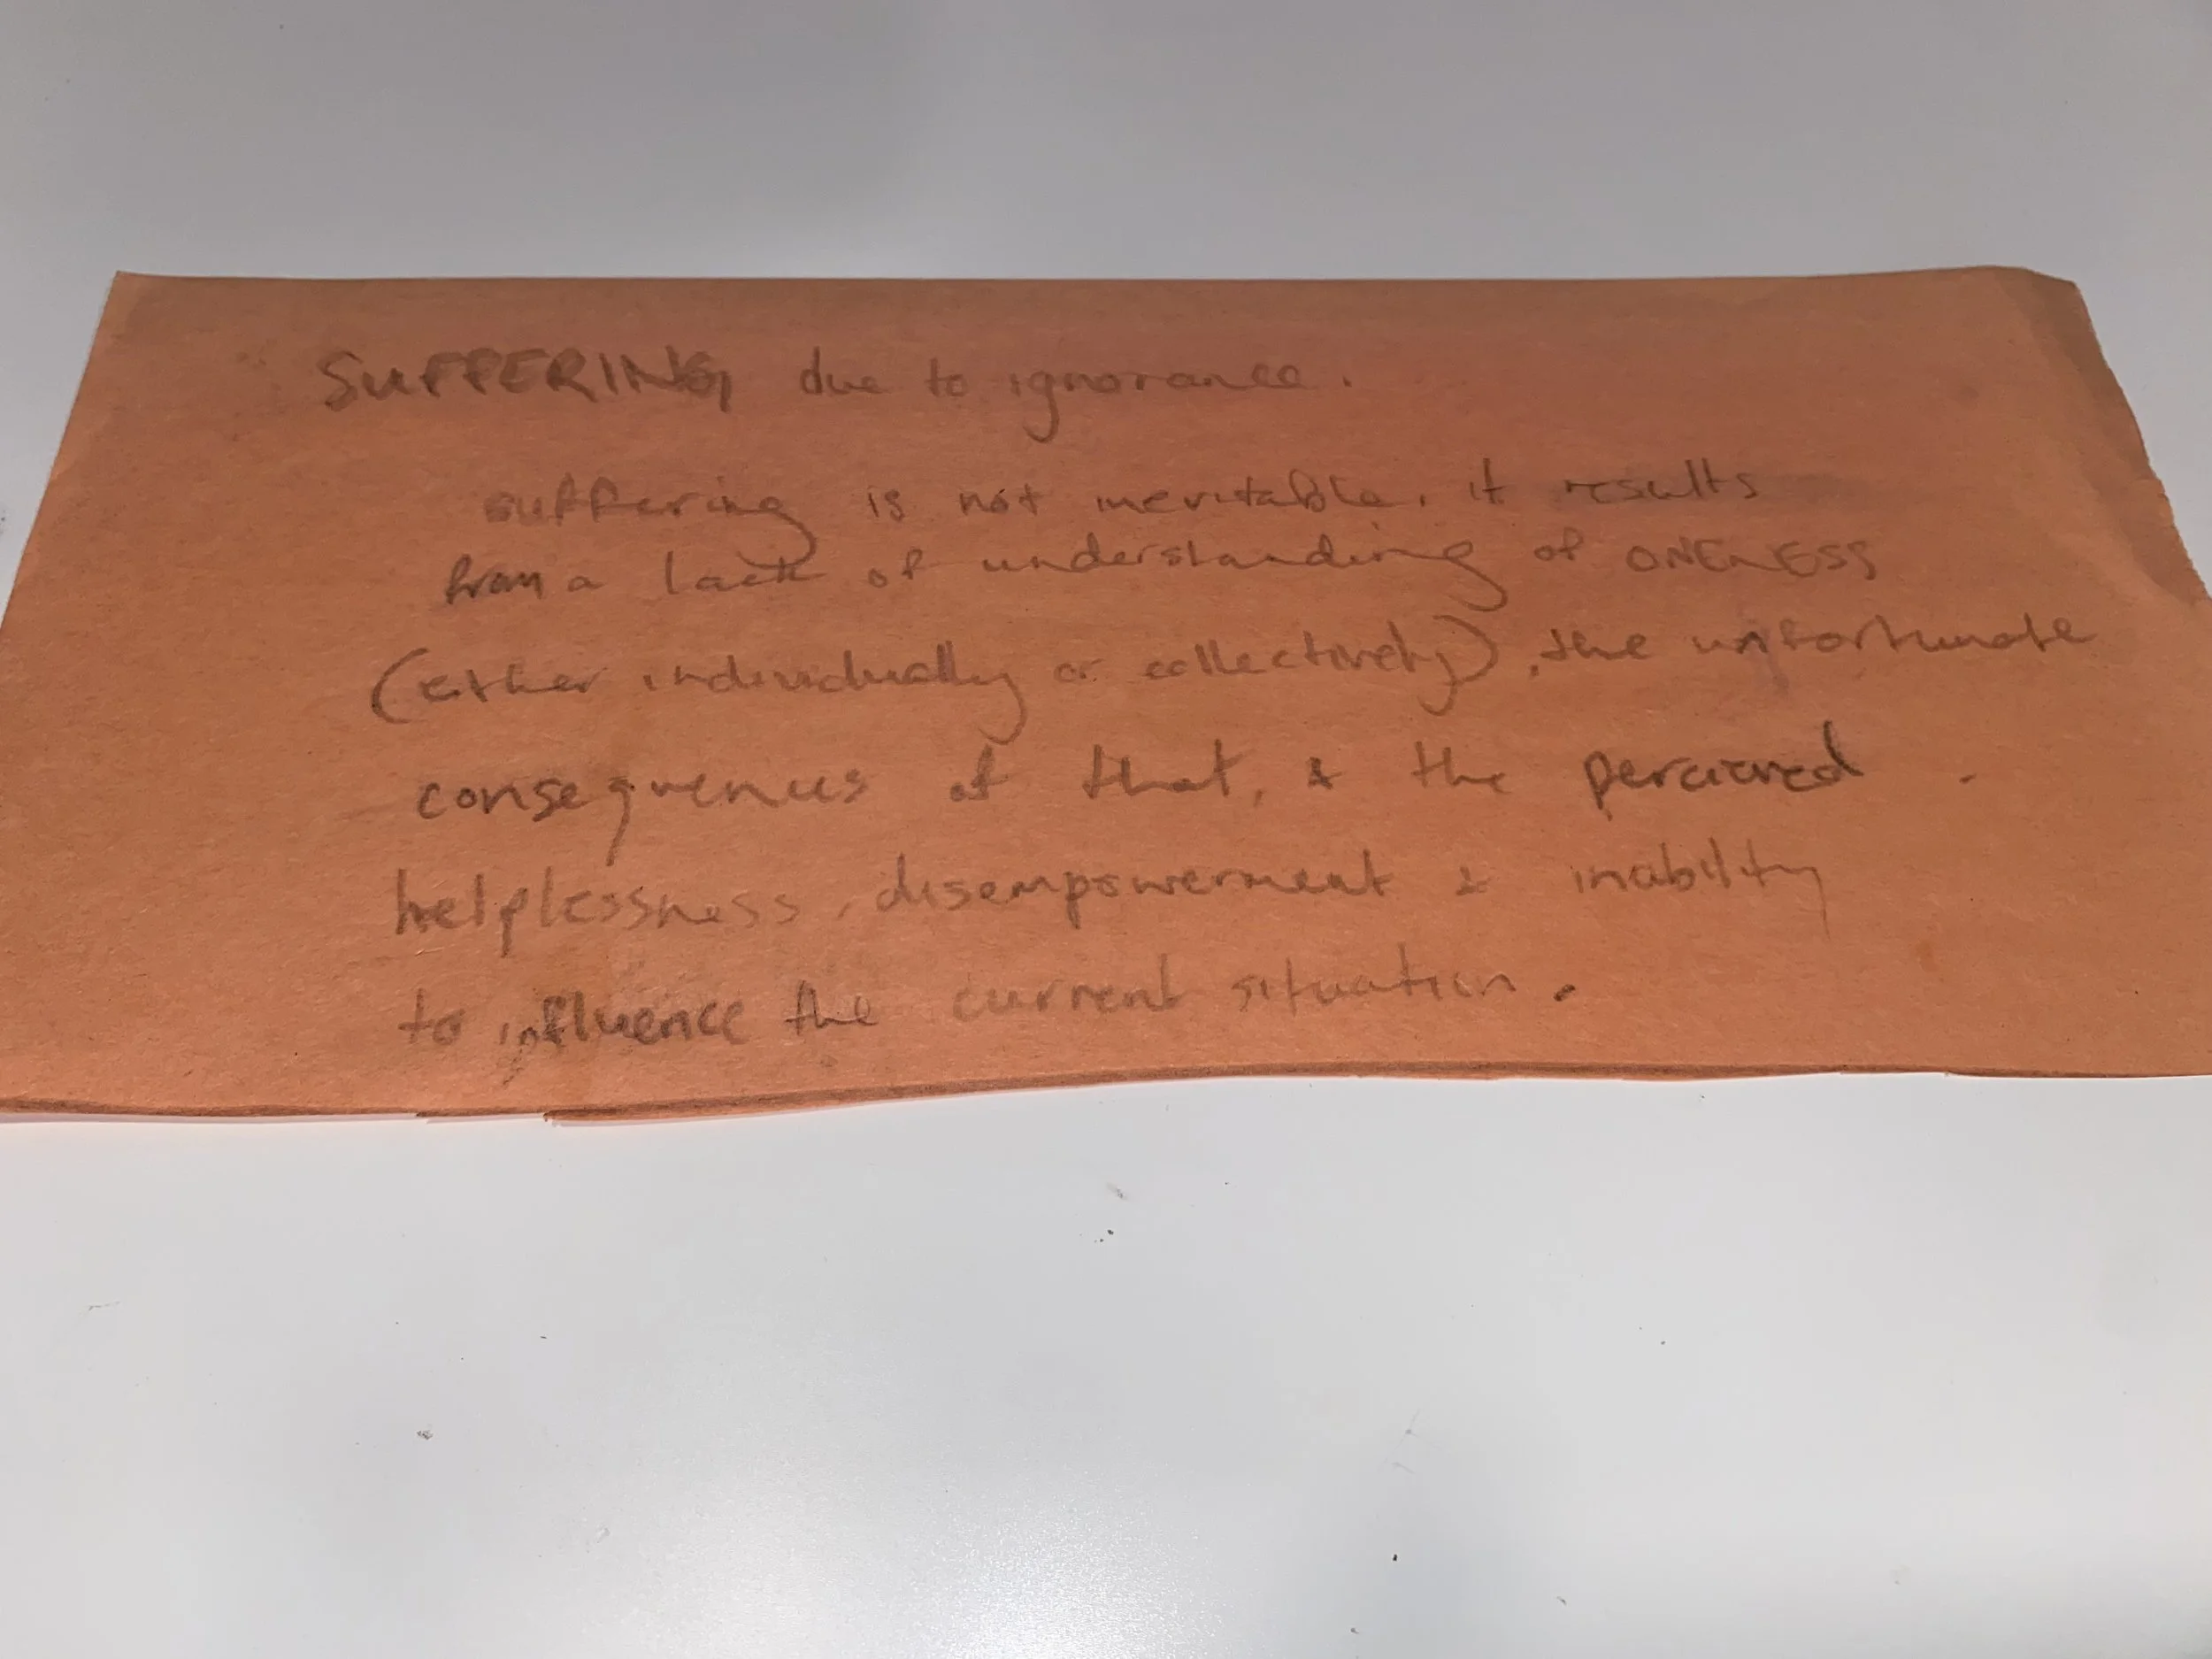 SUFFERING due to ignorance.
suffering is not inevitable. it results
from a lack of understanding of ONENESS
(either individually or collectively), the unfortunate
consequences of that, & the percieved
helplessness, disempowerment & inability
to influence the current situation.